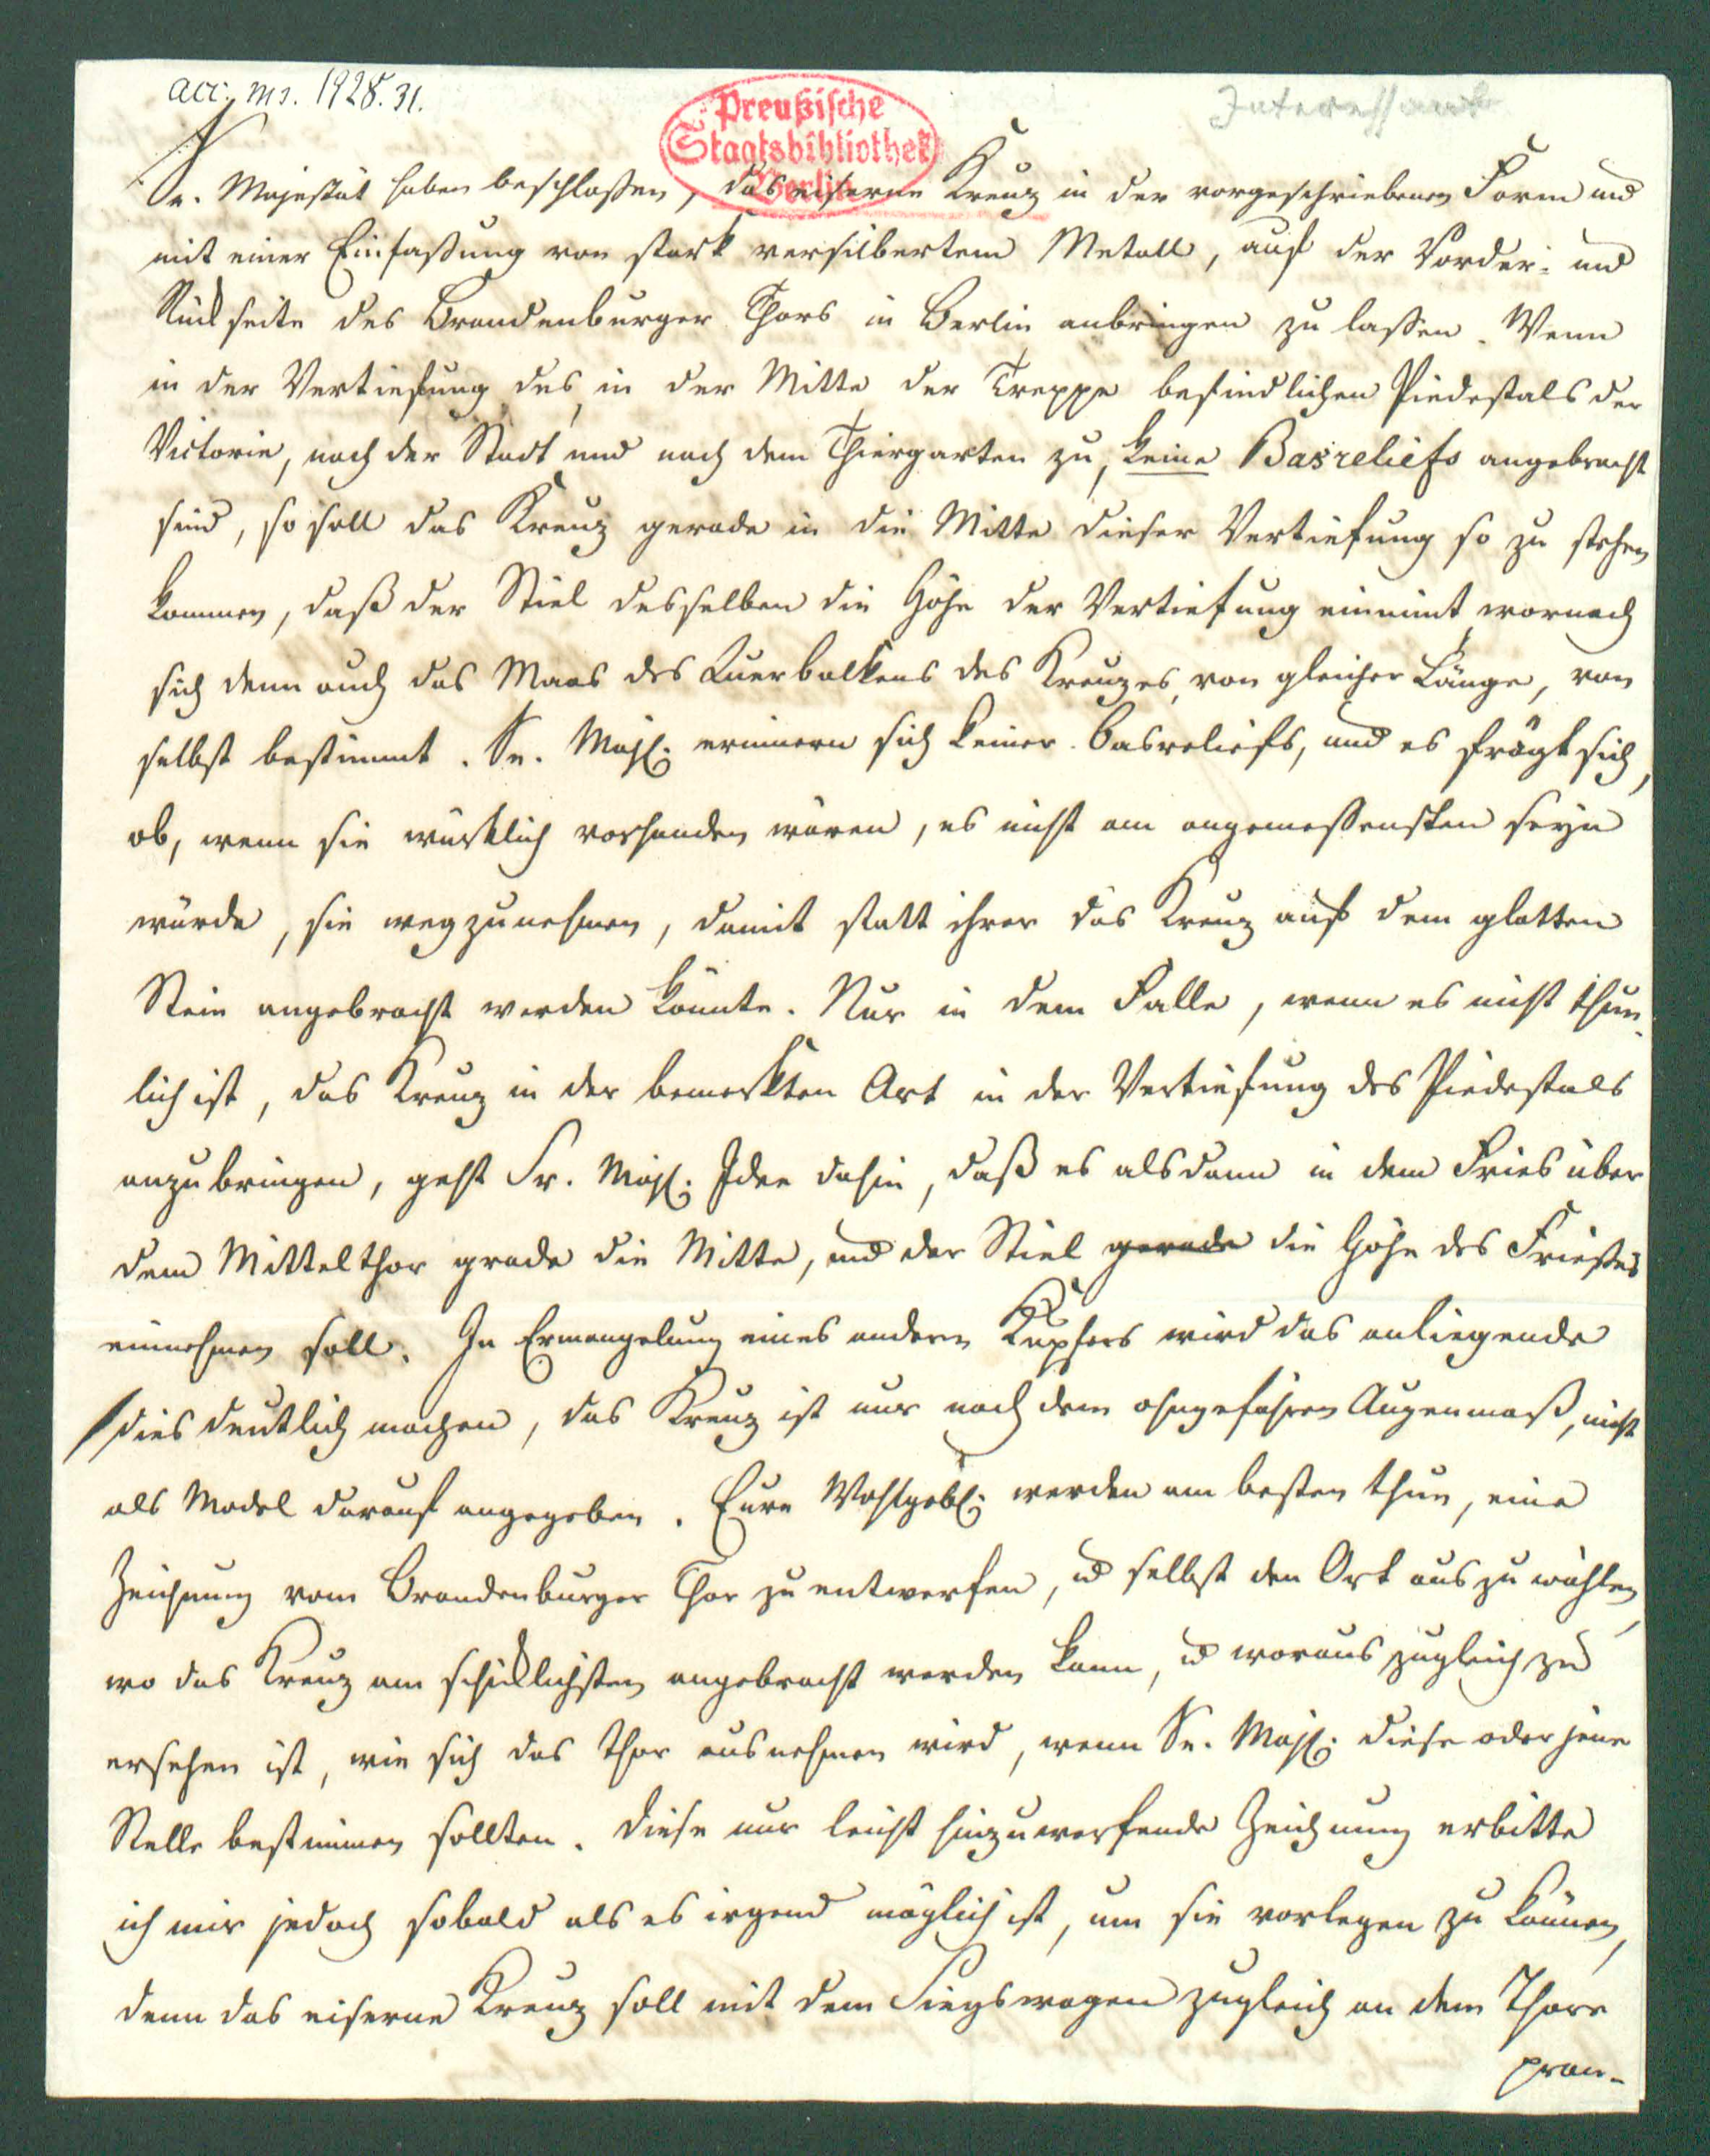 acc. ms. 1928. 31.
Preußische
Staatsbibliothek
Berlin
Interessant
Se. Majestät haben beschlossen, das eiserne Kreuz in der vorgeschriebenen Form und
mit einer Einfaßung von stark versilbertem Metall, auf der Vorder- und
Rückseite des Brandenburger Thors in Berlin anbringen zu laßen. Wenn
in der Vertiefung des, in der Mitte der Treppe befindlichen Piedestals der
Victorie, nach der Stadt und nach dem Thiergarten zu, keine Basreliefs angebracht
sind, so soll das Kreuz gerade in die Mitte dieser Vertiefung so zu stehen
kommen, daß der Stiel desselben die Höhe der Vertiefung einnimt wornach
sich denn auch das Maas des Querbalkens des Kreuzes, von gleicher Länge, von
selbst bestimmt. Se. Maj. erinnern sich keiner Basreliefs, und es frägt sich,
ob, wenn sie würklich vorhanden wären, es nicht am angemeßensten seyn
würde, sie wegzunehmen, damit statt ihrer das Kreuz auf dem glatten
Stein angebracht werden könnte. Nur in dem Falle, wenn es nicht thun-
lich ist, das Kreuz in der bemerkten Art in der Vertiefung des Piedestals
anzubringen, geht Sr. Maj. Idee dahin, daß es alsdann in dem Fries über
dem Mittelthor grade die Mitte, und der Stiel gerade die Höhe des Frieses
einnehmen soll. In Ermangelung eines andern Kupfers wird das anliegende
dies deutlich machen, das Kreuz ist nur nach dem ohngefähren Augenmaß, nicht
als Model darauf angegeben. Eure Wohlgeb. werden am besten thun, eine
Zeichnung vom Brandenburger Thor zu entwerfen, u selbst den Ort auszuwählen,
wo das Kreuz am schicklichsten angebracht werden kann, u woraus zugleich zu
ersehen ist, wie sich das Thor ausnehmen wird, wenn Se. Maj. diese oder jene
Stelle bestimmen sollten. Diese nur leicht hinzuwerfende Zeichnung erbitte
ich mir jedoch sobald als es irgend möglich ist, um sie vorlegen zu können,
denn das eiserne Kreuz soll mit dem Siegswagen zugleich an dem Thore
pran-